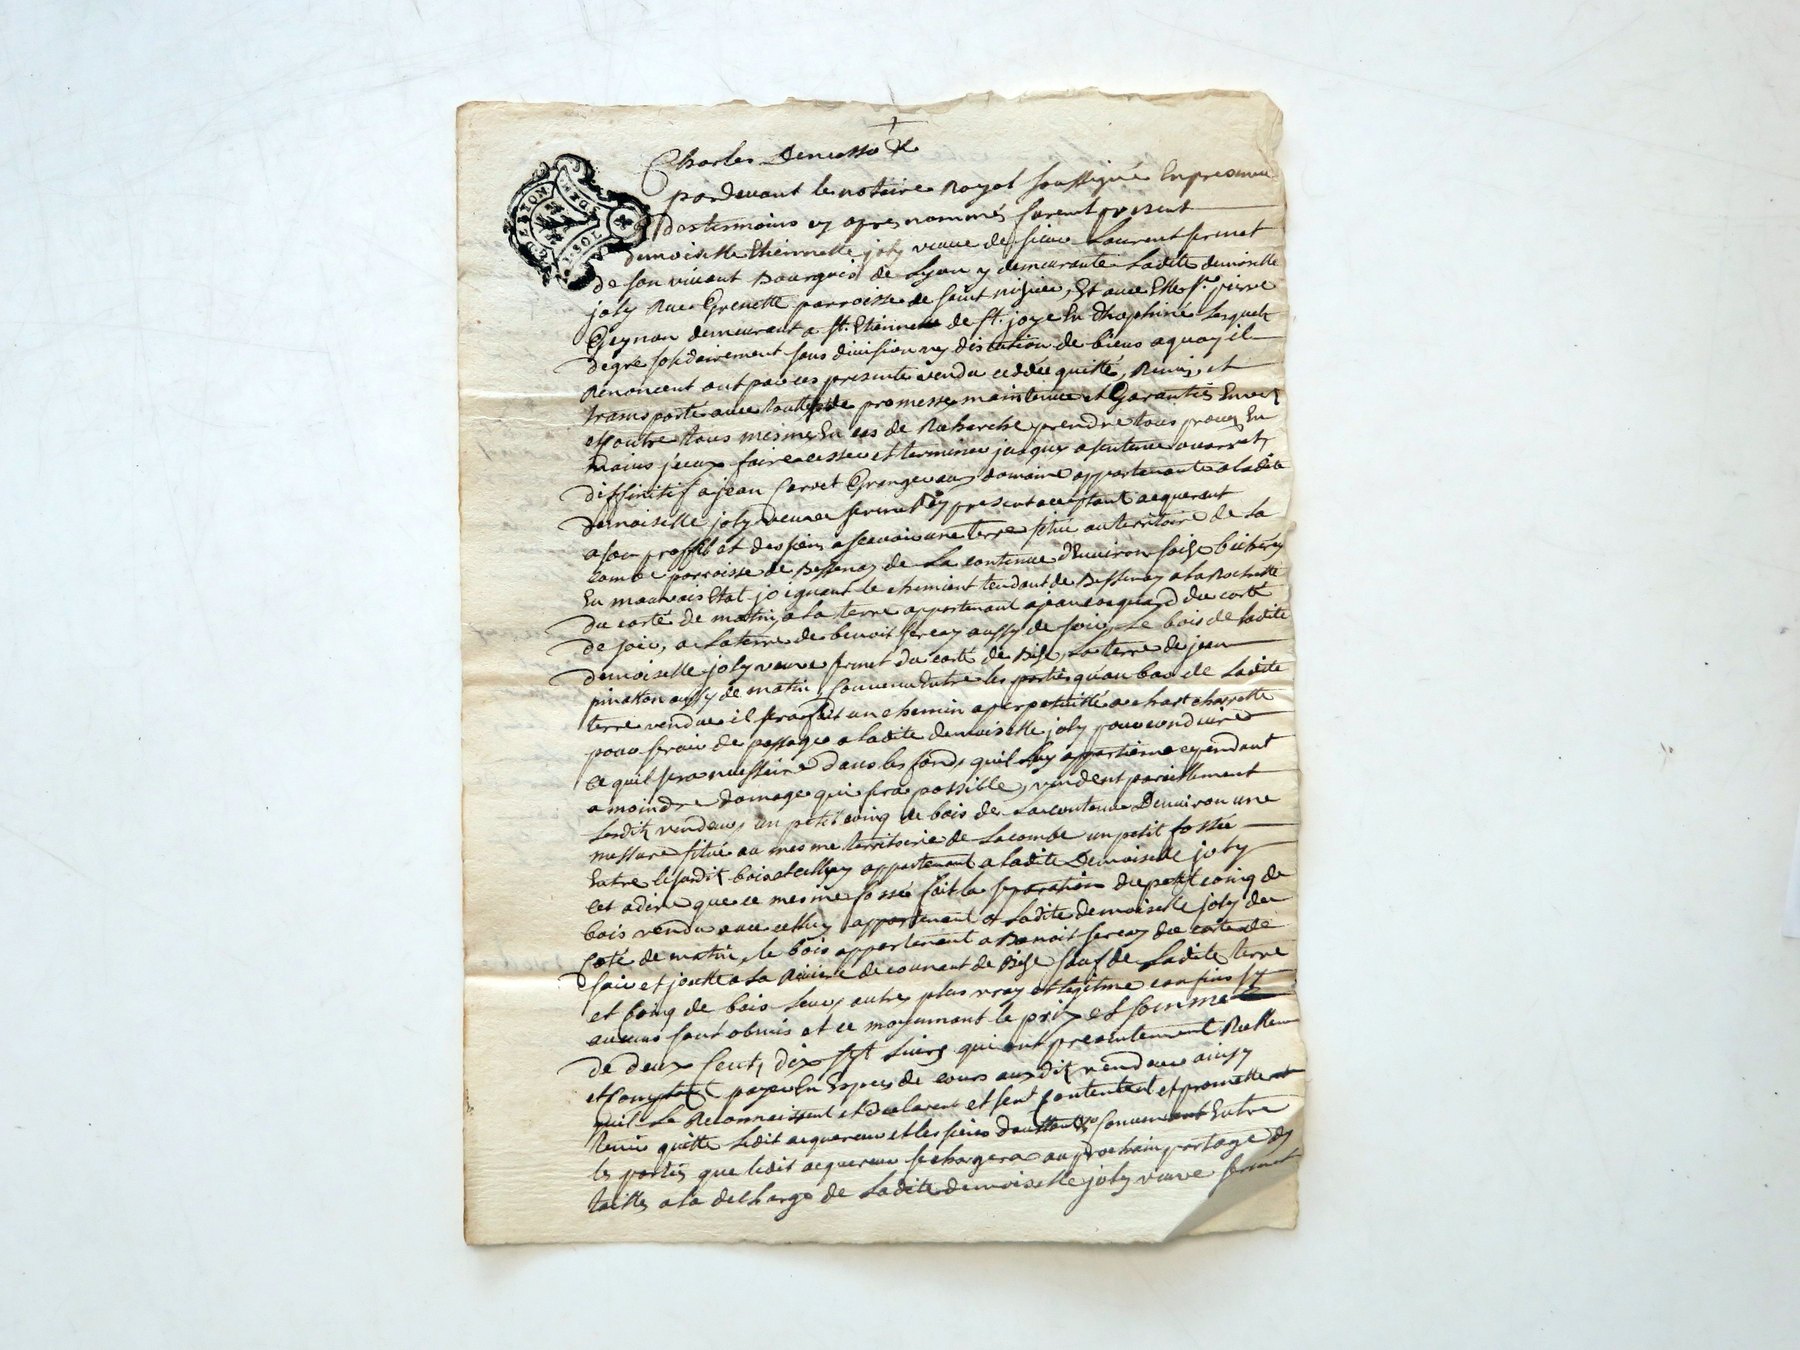 GN. DE LYON
SOLS
Charles Demasso &
pardevant le notaire Royal soussigné En presence
des termoins cy apres nommés furent present
demoiselle Ethiennette joly veuve de sieur Laurent fermet
de son vivant Bourgeois de Lyon y demeurante Ladite demoiselle
joly Rue Grenette parroisse de saint nizier, Et avec Elle Sr. pierre
Geynon demeurant a St. Ethienne de St. joye En dhophiné Lesquels
degré solidairement sans division ny discution de biens aquoy il
Renoncent ont par ces presente vendu ceddée quitté, Remis, et
transporté avec toutte de promesse maintenue et Garantie Envers
et contre tous mesme En cas de Recherche prendre tous proces En
mains j'ceux faire cesser et terminer jusqu'a sentence ou arrets
diffinitif a jean Carret Granger au domaine appartenante a ladite
demoiselle joly veuve fermet cy present acceptant acquerant
a son proffit et des siens a scavoir une terre situé au territoire de La
Combe parroisse de Bessenay de La contenue d'Environ seize bicherées
En mauvais Etat joignant le chemient tendant de Bessenay a la Rochette
du costé de matin, a la terre appartenant a jean Jacquard du costé
de soir, a La terre de benoit sercey aussy de soir, Le bois de ladite
demoiselle joly veuve fermet du costé de Bise, La terre de jean
pinatton aussy de matin, Convenu Entre les parties qu'au bas de Ladite
terre vendue il sera fait un chemin a perpetuitté a chart charrette
pour servir de passage a ladite demoiselle joly pour conduire
ce quil sera necessaire dans les fonds quil luy appartienne cependant
a moindre domage qui sera possible, vendent pareillement
Lesdits vendeurs un petit coing de bois de La contenue Denviron une
messure situé au mesme territoire de Lacombe un petit fossée
Entre lesdits bois et celluy appartenant a ladite Demoiselle joly
cet a dire que ce mesme fossé fait la separation du petit coing de
bois vendu avec celluy appartenant a Ladite demoiselle joly du
coté de matin, le bois appartenant a Benoit sercey du costé de
soir et joutte a la Riviere de courant de Bise sauf de Ladite terre
et Coing de bois Leurs autres plus vray et legitime confins sy
aucuns sont obmis et ce moyennant le prix et somme
de deux Cents dix sept Livres qui ont presentement Reellement
et Comptant payée En Espece de cours auxdits vendeur ainsy
quil Le Reconnaissent et declarent et sen Contentent et promettent
tenir quitte Ledit acquereur et les siens Convenu Entre
les parties que ledit acquereur se chargera au prochain partage des
tailles a la decharge de Ladite demoiselle joly veuve fermet